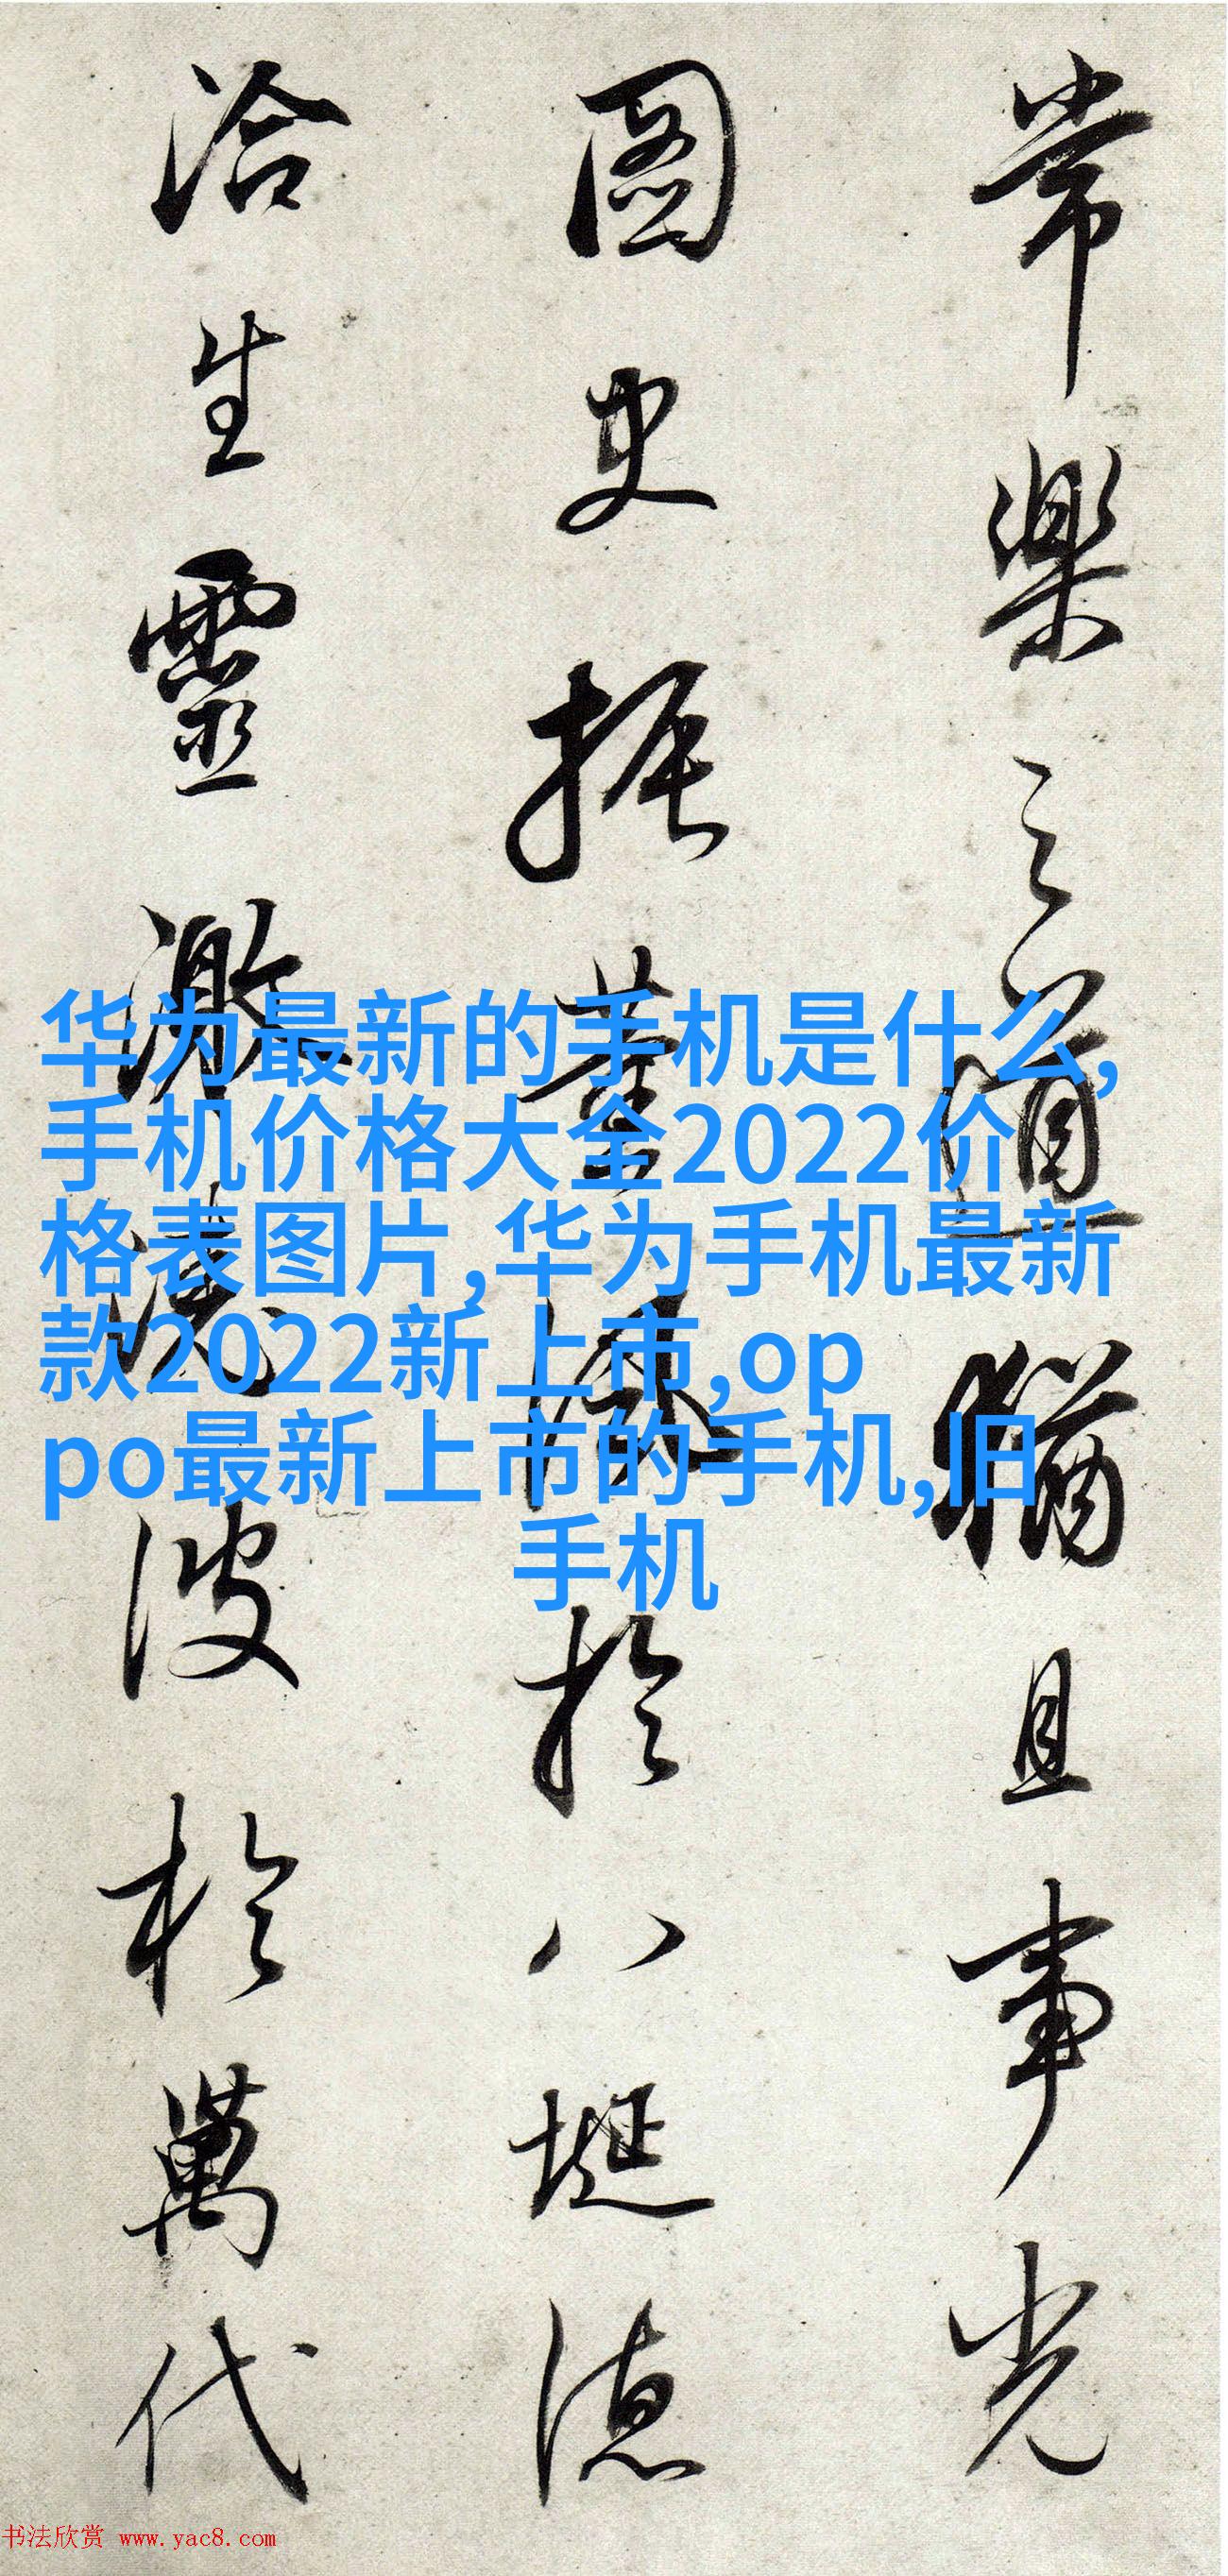 常樂之道猶且事光
圖史振薰風於八埏德
洽生靈激澆波於萬代
华为最新的手机是什么,
手机价格大全2022价
格表图片,华为手机最新
款2022新上市,op
po最新上市的手机,旧
手机
书法欣赏 www.yac8.com